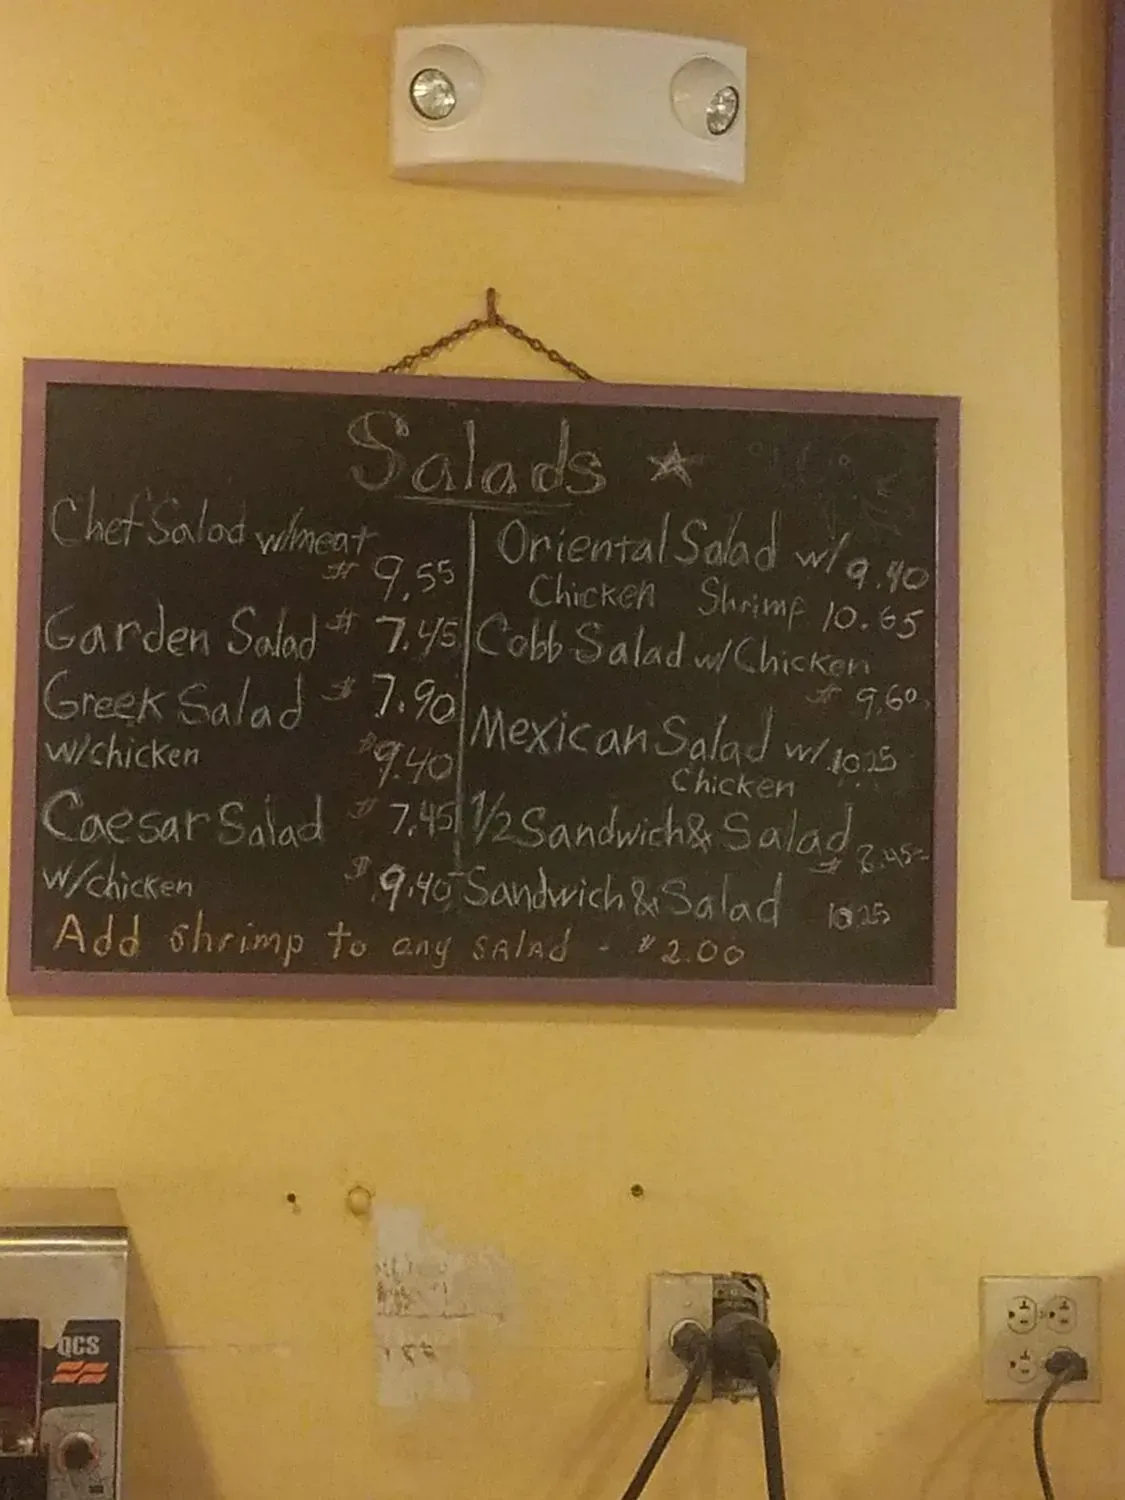 Salads
Chef Salad w/meat
$ 9.55
Garden Salad $ 7.45
Greek Salad $ 7.90
w/chicken $9.40
Caesar Salad $ 7.45
w/chicken $ 9.40
Oriental Salad w/ 9.40
Chicken Shrimp 10.65
Cobb Salad w/Chicken
$ 9.60
Mexican Salad w/ 10.25
Chicken
1/2 Sandwich & Salad $ 8.45
Sandwich & Salad 10.25
Add shrimp to any salad - $2.00
QCS